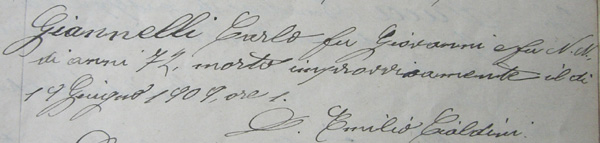 Giannelli Carlo fu Giovanni e fu N. N.
di anni 72, morto improvvisamente il dì
19 Giugno 1909, ore 1.
D. Emilio Cioldini.